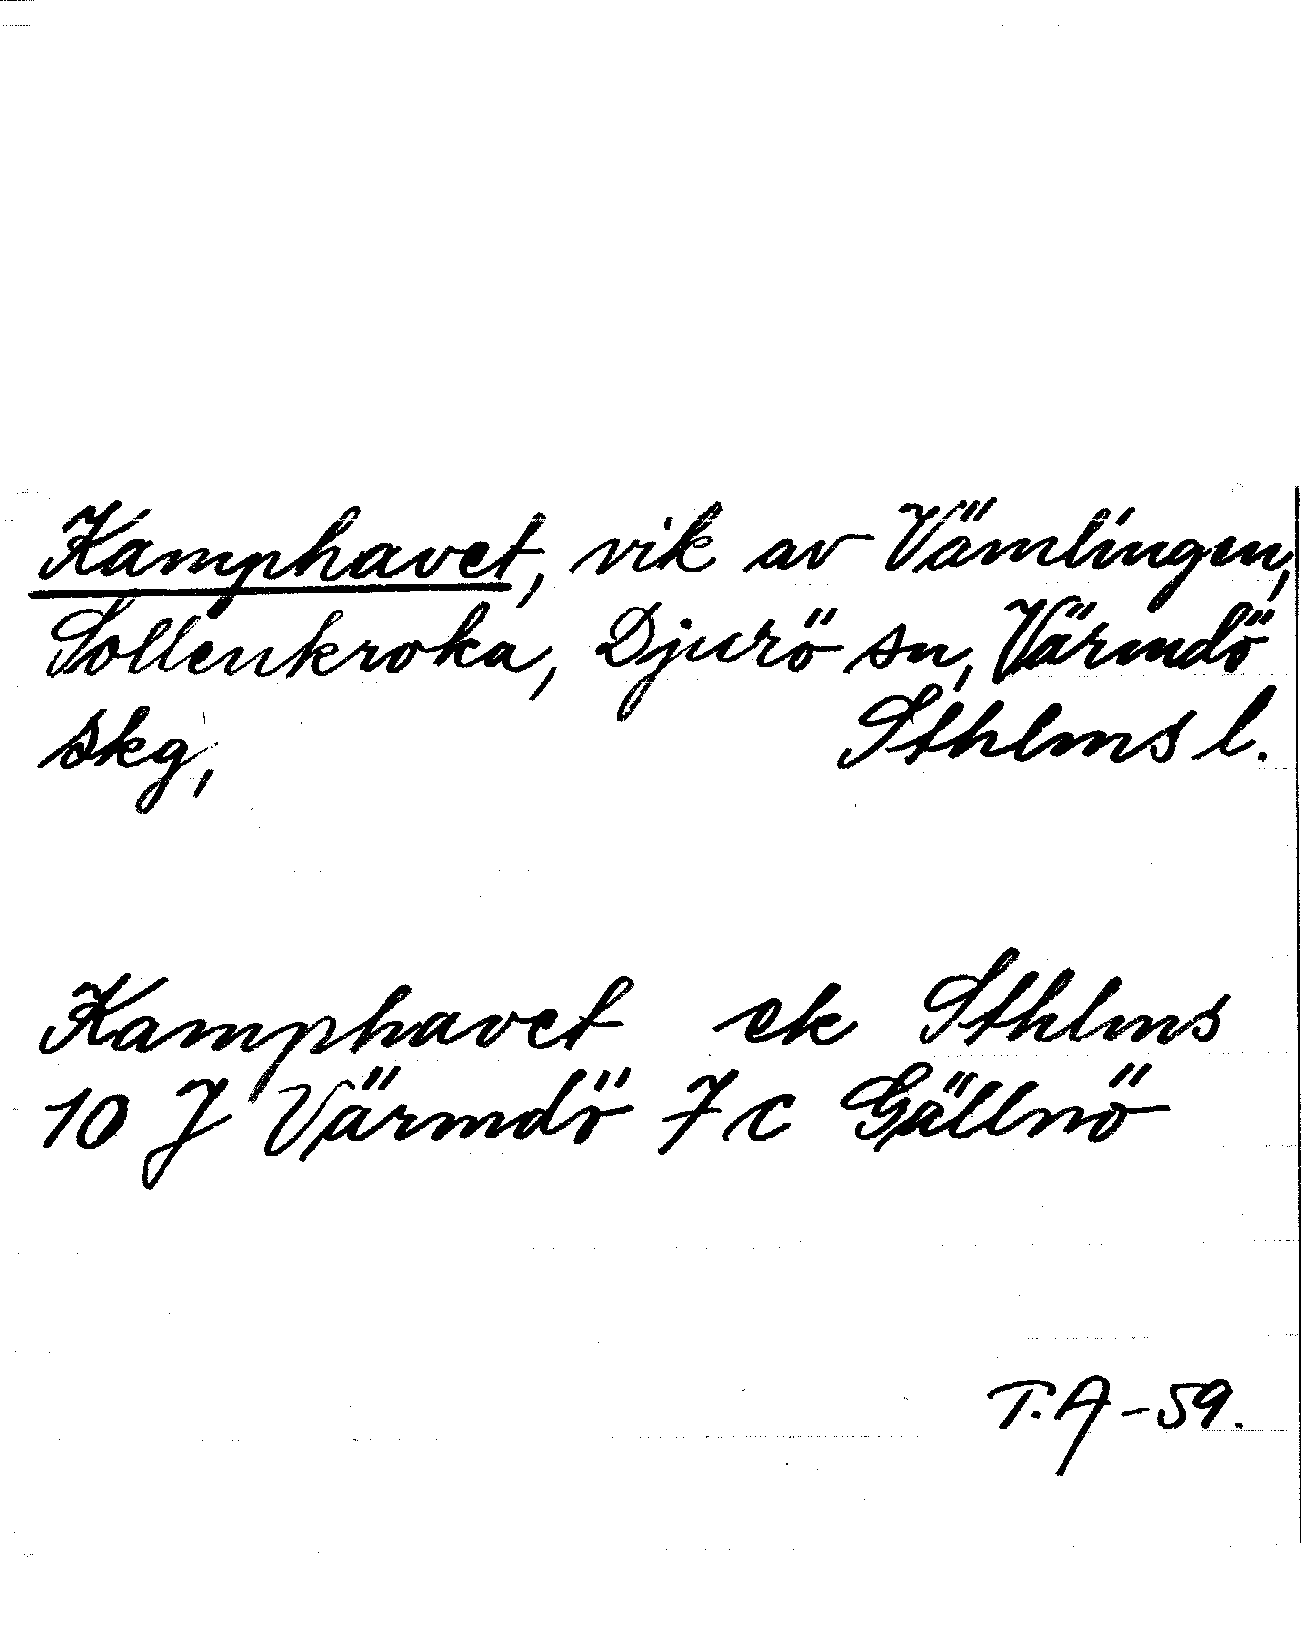 Kamphavet, vik av Vämlingen,
Sollenkroka, Djurö sn, Värmdö
skg, Sthlms l.
Kamphavet ek Sthlms
10 J Värmdö 7 c Gällnö
T.A-59.